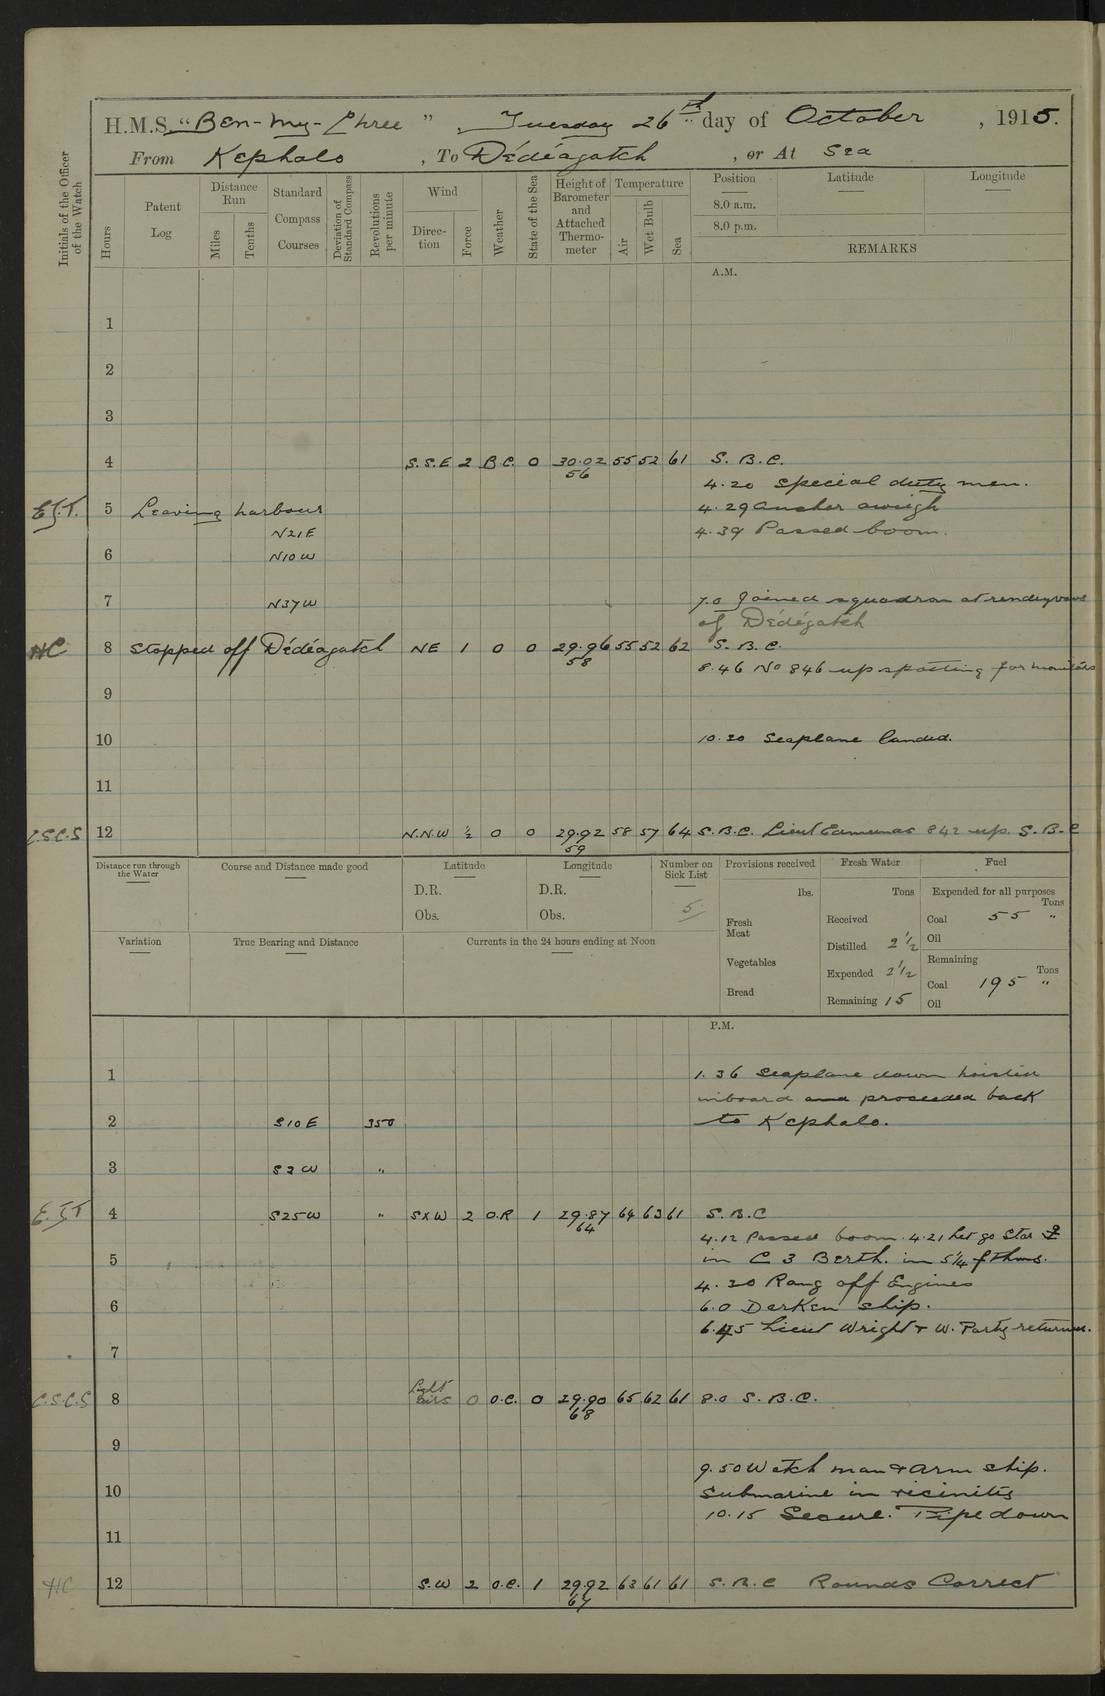 H.M.S. "Ben-my-Chree", Tuesday 26th day of October, 1915.
From Kephalo, To Dédéagatch, or At Sea
Initials of the Officer of the Watch
Hours
Patent Log
Distance Run
Miles
Tenths
Standard Compass Courses
Deviation of Standard Compass
Revolutions per minute
Wind
Direction
Force
Weather
State of the Sea
Height of Barometer and Attached Thermometer
Temperature
Air
Wet Bulb
Sea
Position
Latitude
Longitude
8.0 a.m.
8.0 p.m.
REMARKS
A.M.
1
2
3
4 S.S.E 2 B.C. 0 30.02 55 52 61 S. B. C.
56
4.20 Special duty men.
E.J.T. 5 Leaving harbour 4.29 Anchor aweigh
N21E 4.39 Passed boom.
6 N10W
7 N37W 7.0 Joined squadron at rendezvous
of Dédégatch
HC 8 Stopped off Dédéagatch NE 1 0 0 29.96 55 52 62 S. B. C.
58
8.46 No 846 up spotting for monitors
9
10 10.20 Seaplane landed.
11
C.S.C.S 12 N.N.W ½ 0 0 29.92 58 57 64 S.B.C. Lieut Edmunds 842 up. S.B.C
59
Distance run through the Water
Course and Distance made good
Latitude
D.R.
Obs.
Longitude
D.R.
Obs.
Number on Sick List
5
Provisions received
lbs.
Fresh Meat
Vegetables
Bread
Fresh Water
Tons
Received
Distilled 2½
Expended 2½
Remaining 15
Fuel
Expended for all purposes
Tons
Coal 55 "
Oil
Remaining
Tons
Coal 195 "
Oil
Variation
True Bearing and Distance
Currents in the 24 hours ending at Noon
P.M.
1 1.36 Seaplane down hoisted
inboard and proceeded back
2 S10E 350 to Kephalo.
3 S2W "
E.J.T 4 S25W " SXW 2 O.R 1 29.87 64 63 61 S.B.C
64
4.12 Passed boom. 4.21 Let go Star
5 in C 3 Berth. in 5¼ fthms.
4.30 Rang off Engines
6 6.0 Darken ship.
6.45 Lieut Wright & W. Party returned.
7
C.S.C.S 8 Light Airs 0 O.C. 0 29.90 65 62 61 8.0 S. B. C.
68
9
9.50 Watch man & arm ship.
10 Submarine in vicinity
10.15 Secure. Pipe down
11
HC 12 S.W 2 O.C. 1 29.92 63 61 61 S.B.C Rounds Correct
67